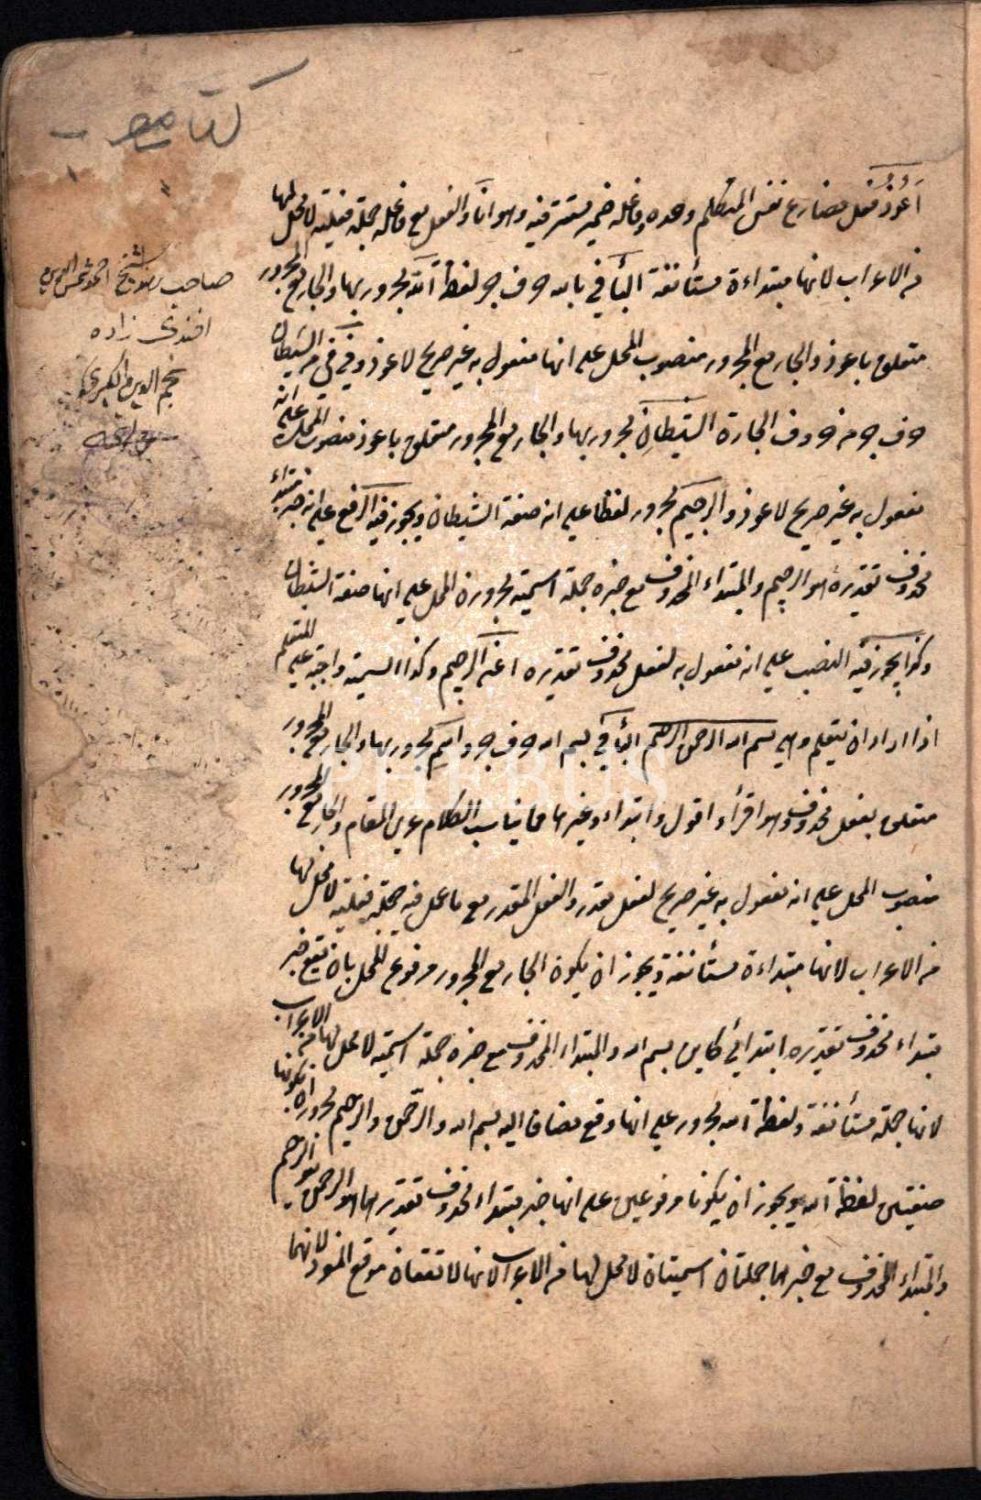 كتاب معرب
اعوذ فعل مضارع نفس المتكلم وحده وفاعله ضمير مستتر فيه وهو انا والفعل مع فاعله جملة فعلية لا محل لها
من الاعراب لانها مبتداءة مستأنفة البأ في بالله حرف جر لفظة الله مجرور بها والجار مع المجرور
متعلق باعوذ والجار مع المجرور منصوب المحل على انها مفعول به غير صريح لاعوذ ومن في من الشيطان
حرف جر من حروف الجارة الشيطان مجرور بها والجار مع المجرور متعلق باعوذ منصوب المحل على انه
مفعول به غير صريح لاعوذ والرجيم مجرور لفظا على انه صفة الشيطان ويجوز فيه الرفع على انه خبر مبتداء
محذوف تقديره هو الرجيم والمبتداء المحذوف مع خبره جملة اسمية مجرورة المحل على انها صفة الشيطان
وكذا يجوز فيه النصب على انه مفعول به لفعل محذوف تقديره اعنى الرجيم وكذا التسمية واجبة على المتعلم
اذا اراد ان يتعلم وهى بسم الله الرحمن الرحيم البأ في بسم الله حرف جر واسم مجرور بها والجار مع المجرور
متعلق بفعل محذوف وهو اقرأ و اقول وابتداء وغيرها مما يناسب الكلام على المقام والجار مع المجرور
منصوب المحل على انه مفعول به غير صريح لفعل مقدر والفعل المقدر مع ما عمل فيه جملة فعلية لا محل لها
من الاعراب لانها مبتداءة مستأنفة ويجوز ان يكون الجار مع المجرور مرفوع المحل بان يقع خبر
مبتداء محذوف تقديره ابتدائي كاين بسم الله والمبتداء المحذوف مع خبره جملة اسمية لا محل لها من الاعراب
لانها جملة مستأنفة ولفظة الله مجرور على انها وقع مضاف اليه بسم الله والرحمن والرحيم مجروران بكونهما
صفتين لفظة الله ويجوز ان يكونا مرفوعين على انها خبر مبتداء محذوف تقديرهما هو الرحمن هو الرحيم
والمبتداء المحذوف مع خبرهما جملتان اسميتان لا محل لها من الاعراب لانها لا تقعان موقع المفرد لانهما
صاحب الشيخ احمد شمس الدين
افندى زاده
نجم الدين الكبرى